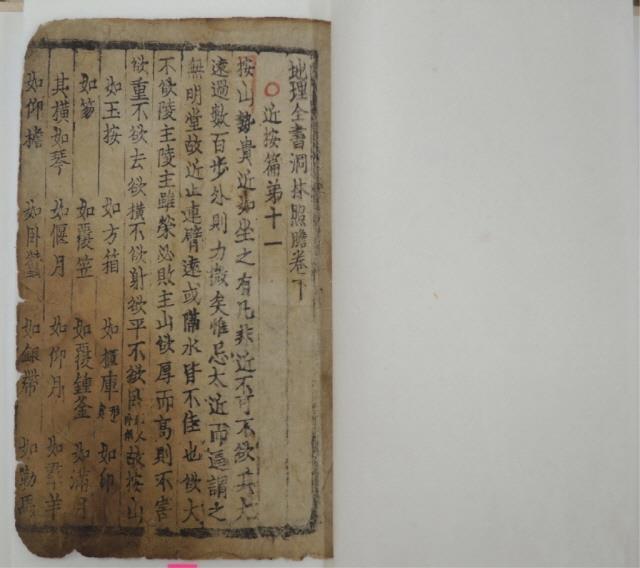 地理全書洞林照膽卷下
○近按篇第十一
按山勢貴近如坐之有几非近不可不欲其大
遠過數百步外則力微矣惟忌太近而逼謂之
無明堂故近止連臂遠或隔水皆不佳也欲大
不欲陵主陵主雖榮必敗主山欲厚而高則不害
欲重不欲去欲橫不欲射欲平不欲 故按山
如玉按 如方箱 如櫃庫 如印
如笏 如覆笠 如覆鍾釜 如滿月
其橫如琴 如偃月 如仰月 如羣羊
如仰 如臥 如銀帶 如勒馬